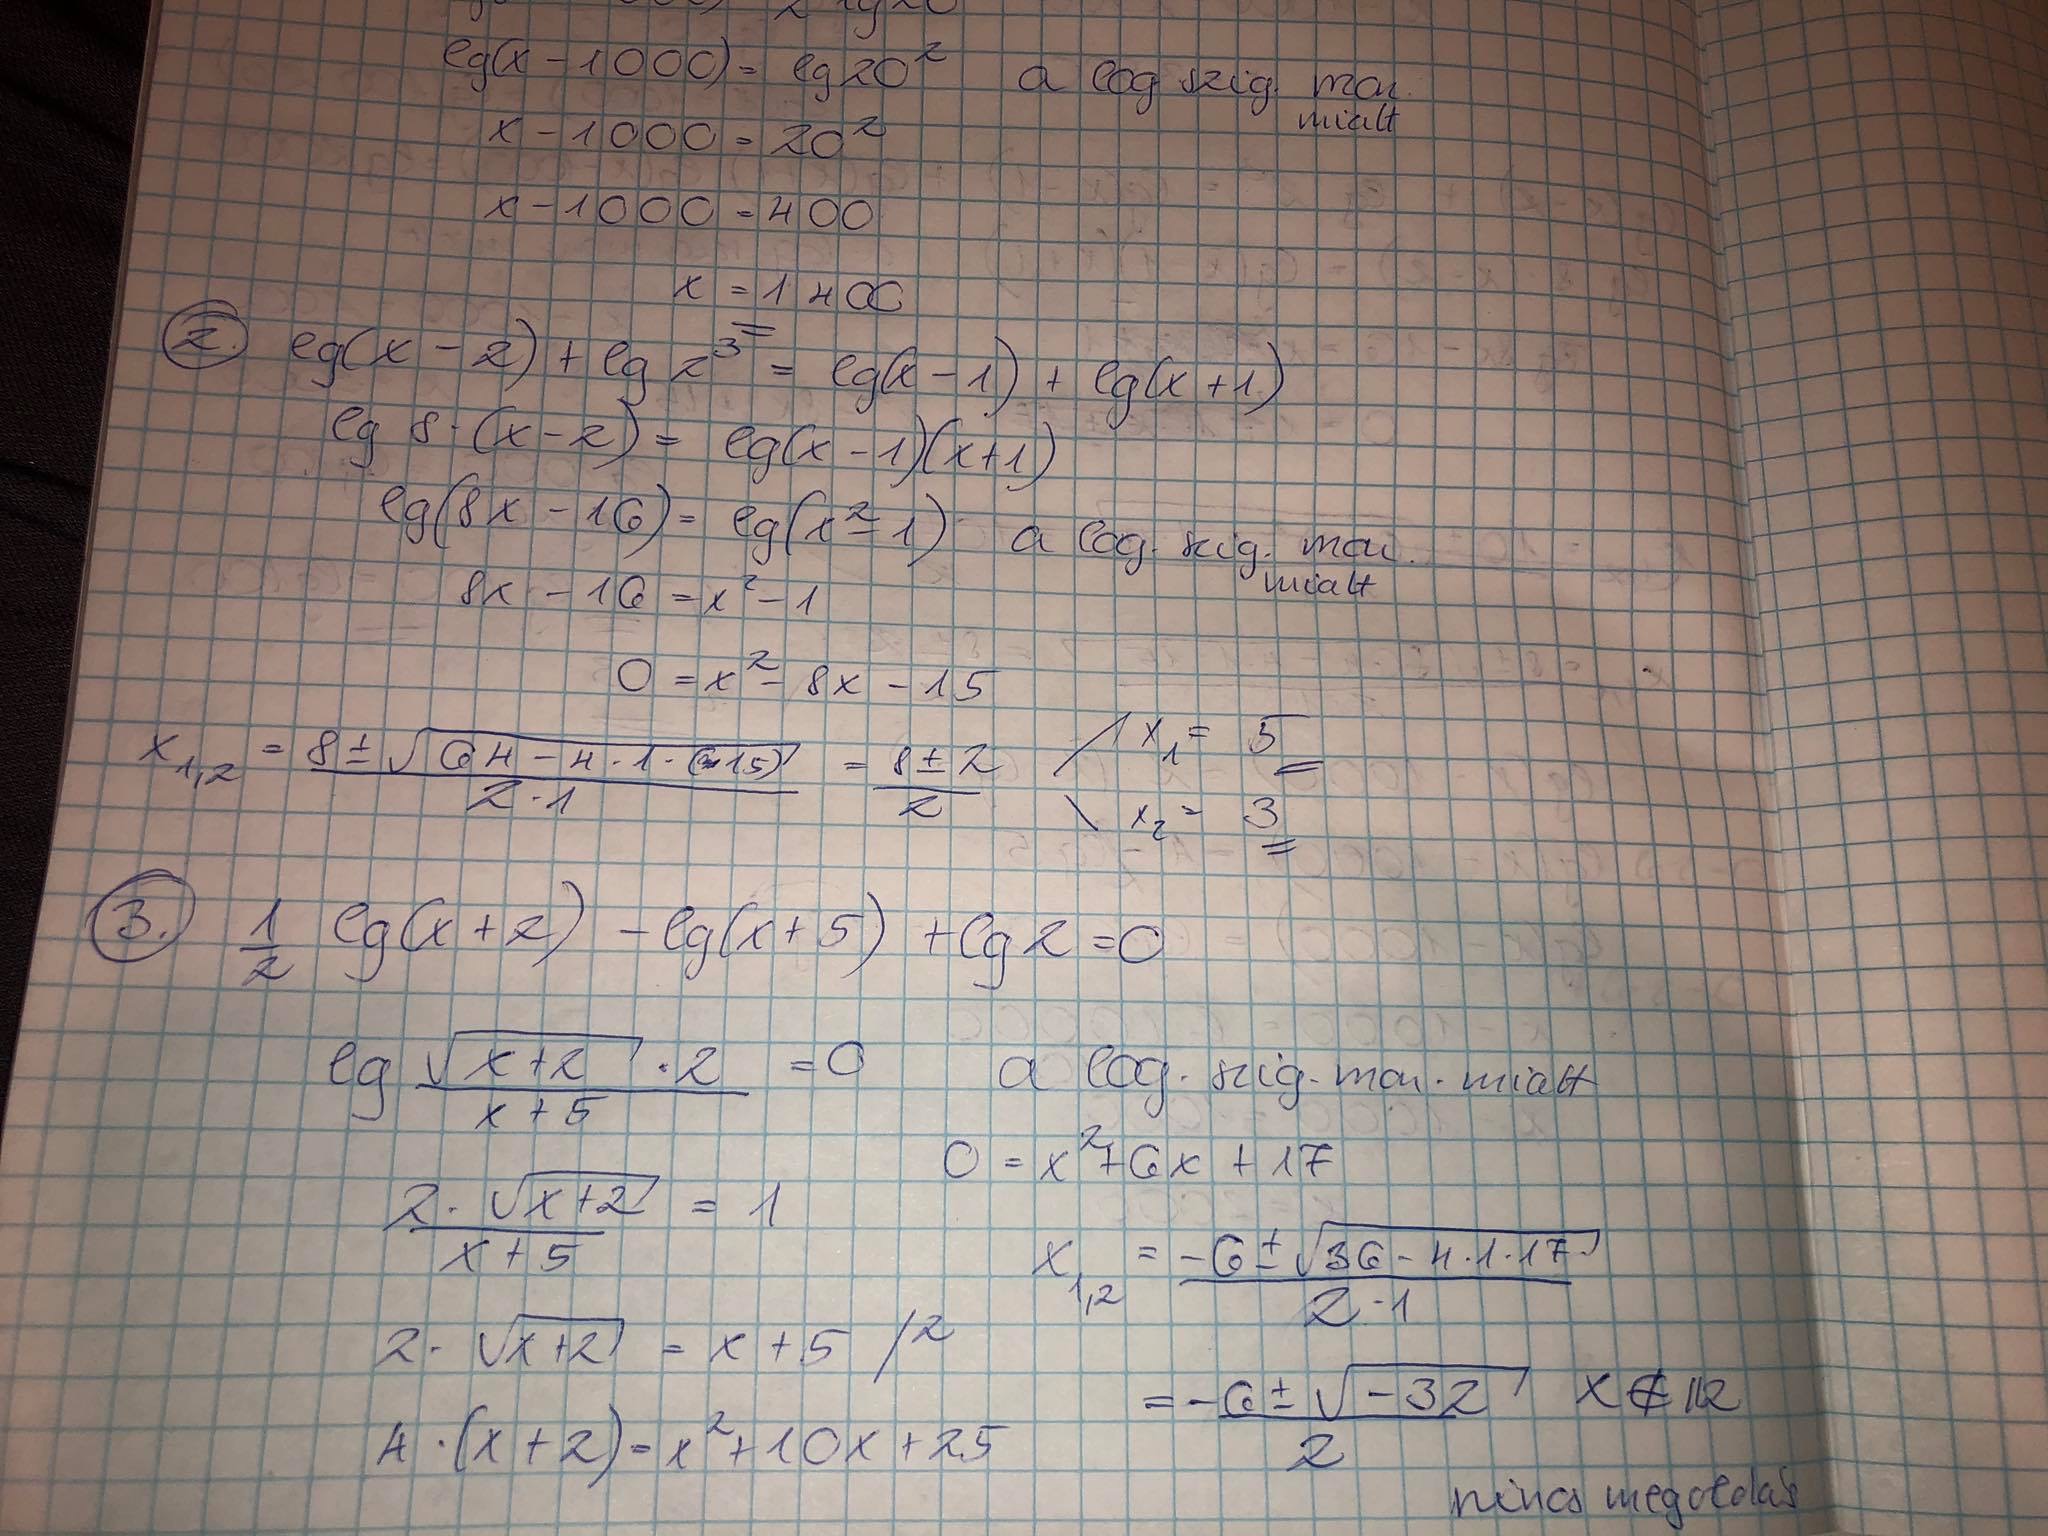 lg(x-1000) = lg20² a log szig. mon. miatt
x-1000 = 20²
x-1000 = 400
x = 1400
2. lg(x-2) + lg 2³ = lg(x-1) + lg(x+1)
lg 8·(x-2) = lg(x-1)(x+1)
lg(8x-16) = lg(x²-1) a log. szig. mon. miatt
8x-16 = x²-1
0 = x²-8x-15
x₁,₂ = (8±√(64-4·1·(-15)))/(2·1) = (8±2)/2 x₁ = 5
x₂ = 3
3. 1/2 lg(x+2) - lg(x+5) + lg2 = 0
lg (√(x+2)·2)/(x+5) = 0 a log. szig. mon. miatt
(2·√(x+2))/(x+5) = 1
2·√(x+2) = x+5 /²
4·(x+2) = x²+10x+25
0 = x²+6x+17
x₁,₂ = (-6±√(36-4·1·17))/(2·1)
= (-6±√(-32))/2 x∉ℝ
nincs megoldás